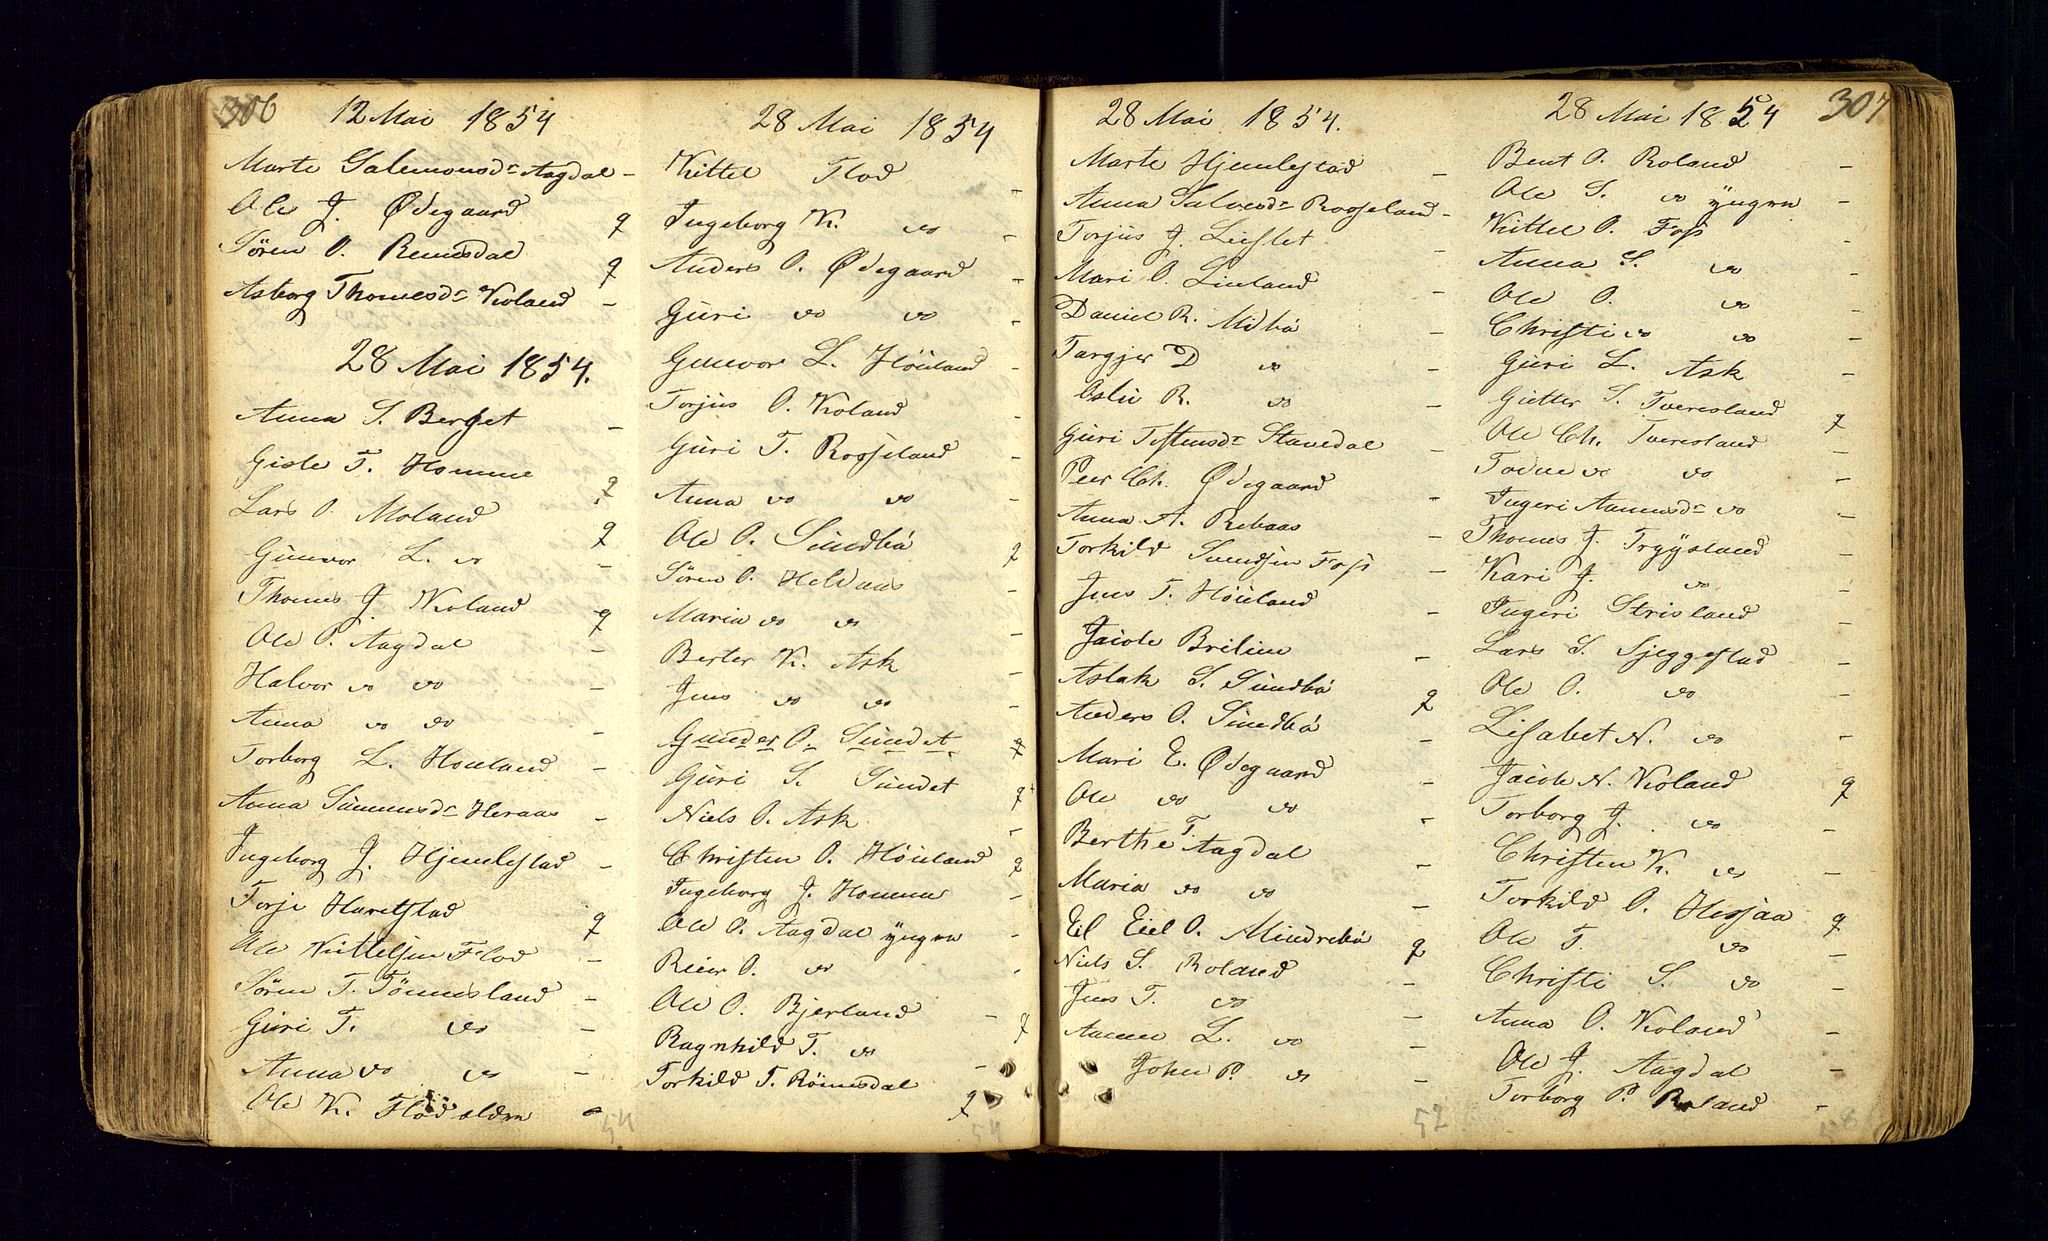 306
12 Mai 1854
Marte Salemonsdr Aagdal -
Ole J. Ødegaard q
Sören O. Remesdal q
Asborg Thomesdr Kroland -
28 Mai 1854.
Anna S. Berget -
Gisle T. Homme q
Lars O. Moland q
Gunvor L. do -
Thomes J. Kroland q
Ole P. Aagdal -
Halvor do do -
Anna do do -
Torborg L. Houland -
Anna Simensdr Heraas -
Ingeborg J. Hjemlestad -
Torje Haretstad q
Ole Kittelsen Flod -
Sören T. Tönnesland -
Guri T. do -
Anna do do -
Ole K. Flod ældre -
54
28 Mai 1854
Kittel Flod -
Ingeborg K. do -
Anders O. Ødegaard -
Guri do do -
Gunvor L. Höiland -
Torjus O. Kroland -
Guri T. Roosseland -
Anna do do -
Ole O. Sundbö q
Sören O. Heldaas -
Maria do do -
Berter K. Ask -
Jens do do -
Gunder O. Sundet q
Guri S. Sundet q
Niels O. Ask -
Christen O. Höiland q
Ingeborg J. Homme -
Ole O. Aagdal yngre -
Reier O. do -
Ole O. Bjerland q
Ragnhild T. do -
Torkild T. Römesdal q
54
28 Mai 1854.
Marte Hjemlestad -
Anna Salvesdr Roosseland -
Torjus J. Lieslet -
Mari O. Linland -
Daniel R. Midbö -
Targjer D do -
Osli R. do -
Guri Testensdr Stavedal -
Peer Ch. Ødegaard -
Anna A. Rebaas -
Torkild Svendsen Foss -
Jens T. Höiland -
Jacob Brilien -
Aslak S. Sundbö q
Anders O. Sundbö -
Mari E. Ødegaard -
Ole do do -
Berthe T. Aagdal -
Maria do do -
El Eiel O. Mindrebö q
Niels S. Roland -
Jens T. do -
Aanen L. do -
John P. do -
52
28 Mai 1854
307
Bent O. Roland -
Ole S. do yngre -
Kittel O. Foss -
Anna S. do -
Ole O. do -
Christi do do -
Guri L. Ask -
Gietter S. Tveresland q
Ole Ch. Tveresland -
Todne do do -
Ingeri Aanensdr do -
Thomes J. Tryysland -
Kari J. do -
Ingeri Strisland -
Lars S. Sjeggestad -
Ole O. do -
Lisabet N. do -
Jacob N. Kroland q
Torborg J. do -
Christen K. do -
Torkild O. Hesjaa q
Ole T. do -
Christi S. do -
Anna O. Kroland -
Ole J. Aagdal -
Torborg P. Roland -